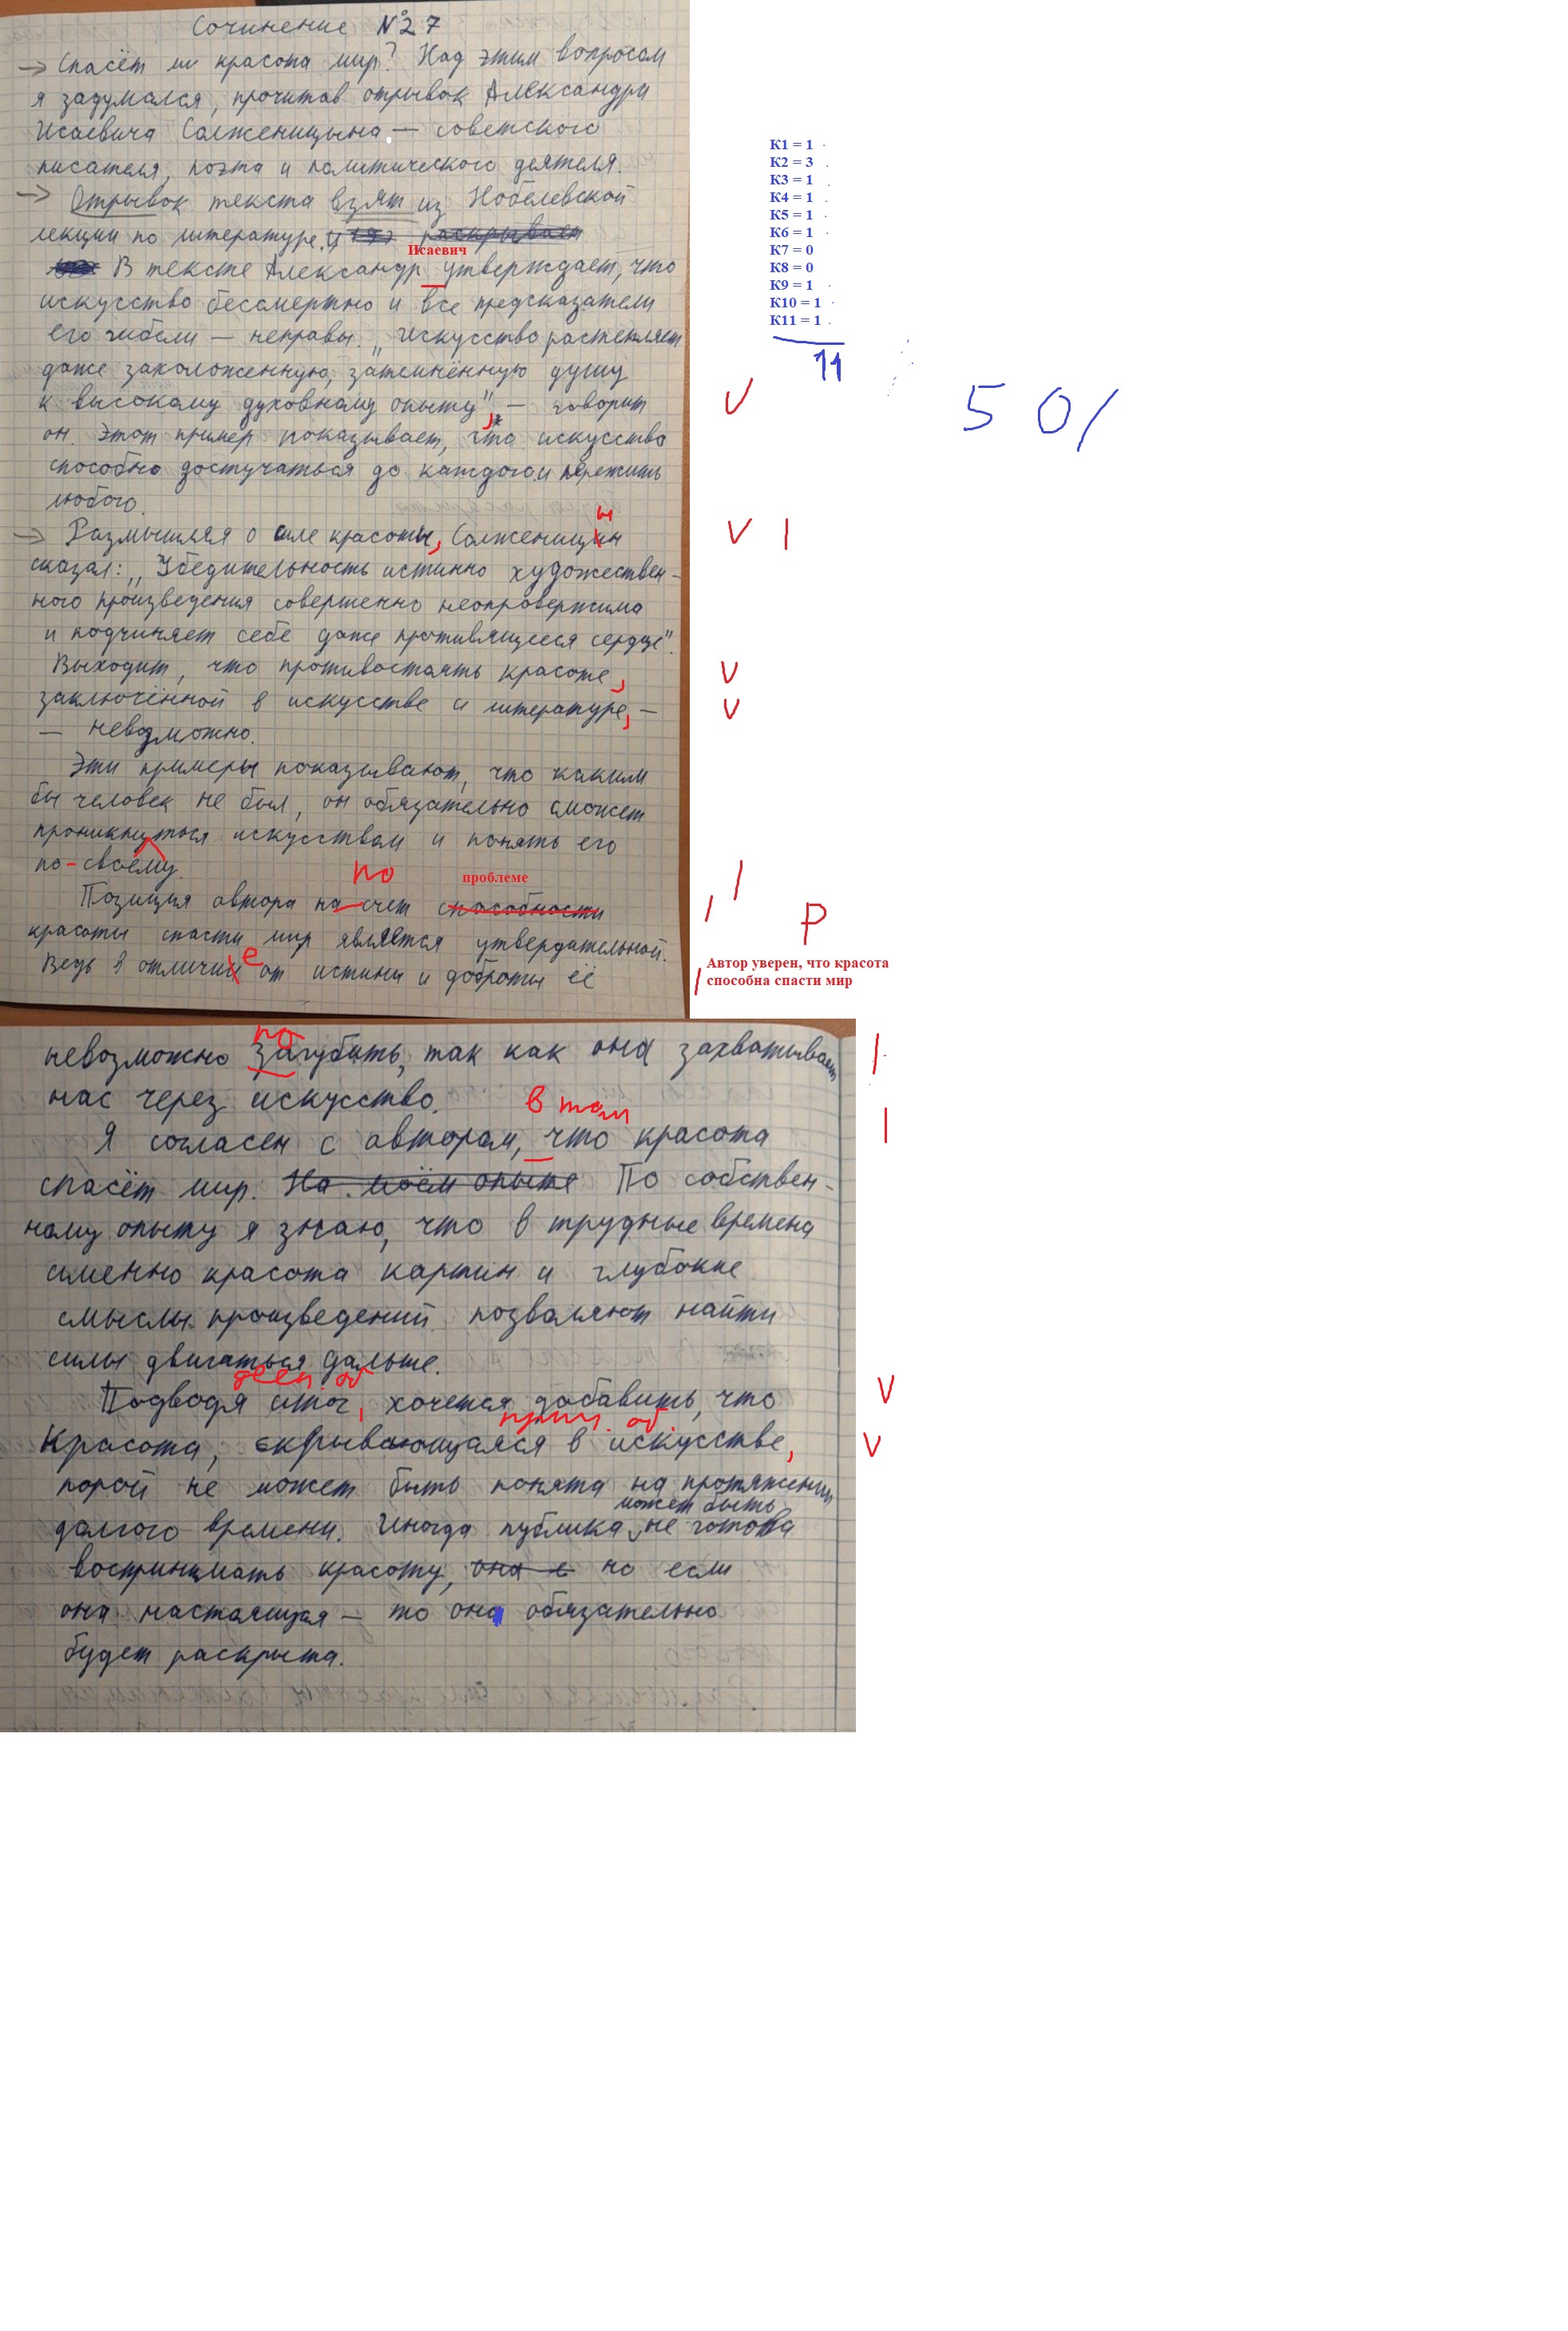 Сочинение №27
→ Спасёт ли красота мир? Над этим вопросом
я задумался, прочитав отрывок Александра
Исаевича Солженицына — советского
писателя, поэта и политического деятеля.
→ Отрывок текста взят из Нобелевской
лекции по литературе. раскрывает
Исаевич
В тексте Александр утверждает, что
искусство бессмертно и все предсказатели
его гибели — неправы. „Искусство растепляет
даже захоложенную, затемнённую душу
к высокому духовному опыту", — говорит
он. Этот пример показывает, что искусство
способно достучаться до каждого и пережить
любого.
ы
→ Размышляя о силе красоты, Солженицин
сказал: „Убедительность истинно художествен-
ного произведения совершенно неопровержима
и подчиняет себе даже противящееся сердце".
Выходит, что противостоять красоте,
заключённой в искусстве и литературе, —
— невозможно.
Эти примеры показывают, что каким
бы человек не был, он обязательно сможет
проникнуться искусством и понять его
по-своему.
по проблеме
Позиция автора на счет способности
красоты спасти мир является утвердительной.
е
Ведь в отличии от истины и доброты её
по
невозможно загубить, так как она захватывает
нас через искусство.
в том
Я согласен с автором, что красота
спасёт мир. На моём опыте По собствен-
ному опыту я знаю, что в трудные времена
именно красота картин и глубокие
смыслы произведений позволяют найти
силы двигаться дальше.
деен. об
Подводя итог, хочется добавить, что
прич. об.
красота, скрывающаяся в искусстве,
порой не может быть понята на протяжении
может быть
долгого времени. Иногда публика не готова
воспринимать красоту, она с но если
она настоящая — то она обязательно
будет раскрыта.
K1 = 1
K2 = 3
K3 = 1
K4 = 1
K5 = 1
K6 = 1
K7 = 0
K8 = 0
K9 = 1
K10 = 1
K11 = 1
11
50/
V
V |
V
V
|
| Р
Автор уверен, что красота
| способна спасти мир
|
|
V
V